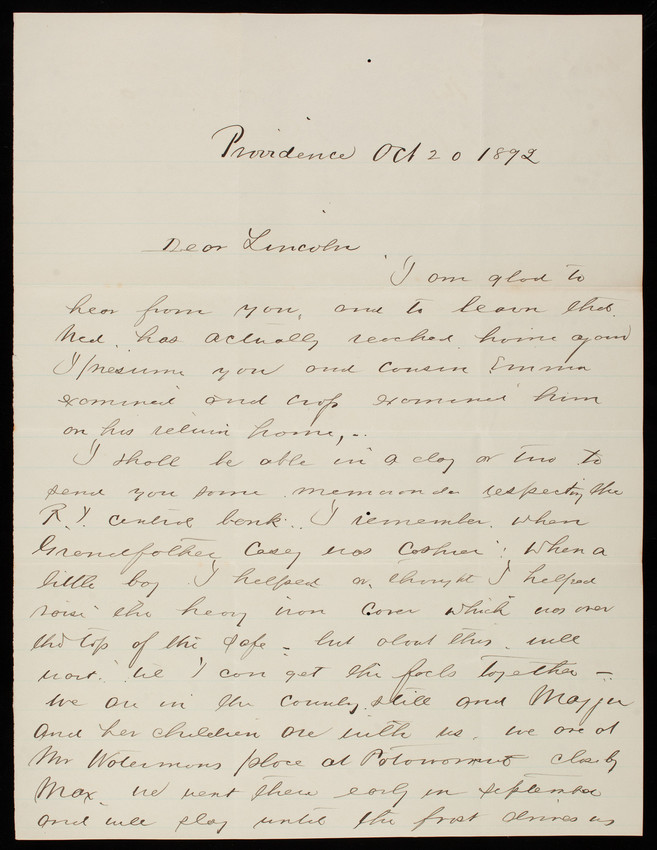 Providence Oct 20 1892
Dear Lincoln
I am glad to
hear from you, and to learn that
Ned. has actually reached home again
I presume you and cousin Emma
examined and cross examined him
on his return home,
I shall be able in a day or two to
send you some memoranda respecting the
R.I. central bank. I remember when
Grandfather Casey was Cashier; When a
little boy I helped or thought I helped
raise the heavy iron cover which was over
the top of the safe - but about this will
wait till I can get the facts together -
We are in the country still and Maggie
and her children are with us. we are at
Mr Watermans place at Potowomut close by
Max. we went there early in September
and will stay until the frost drives us